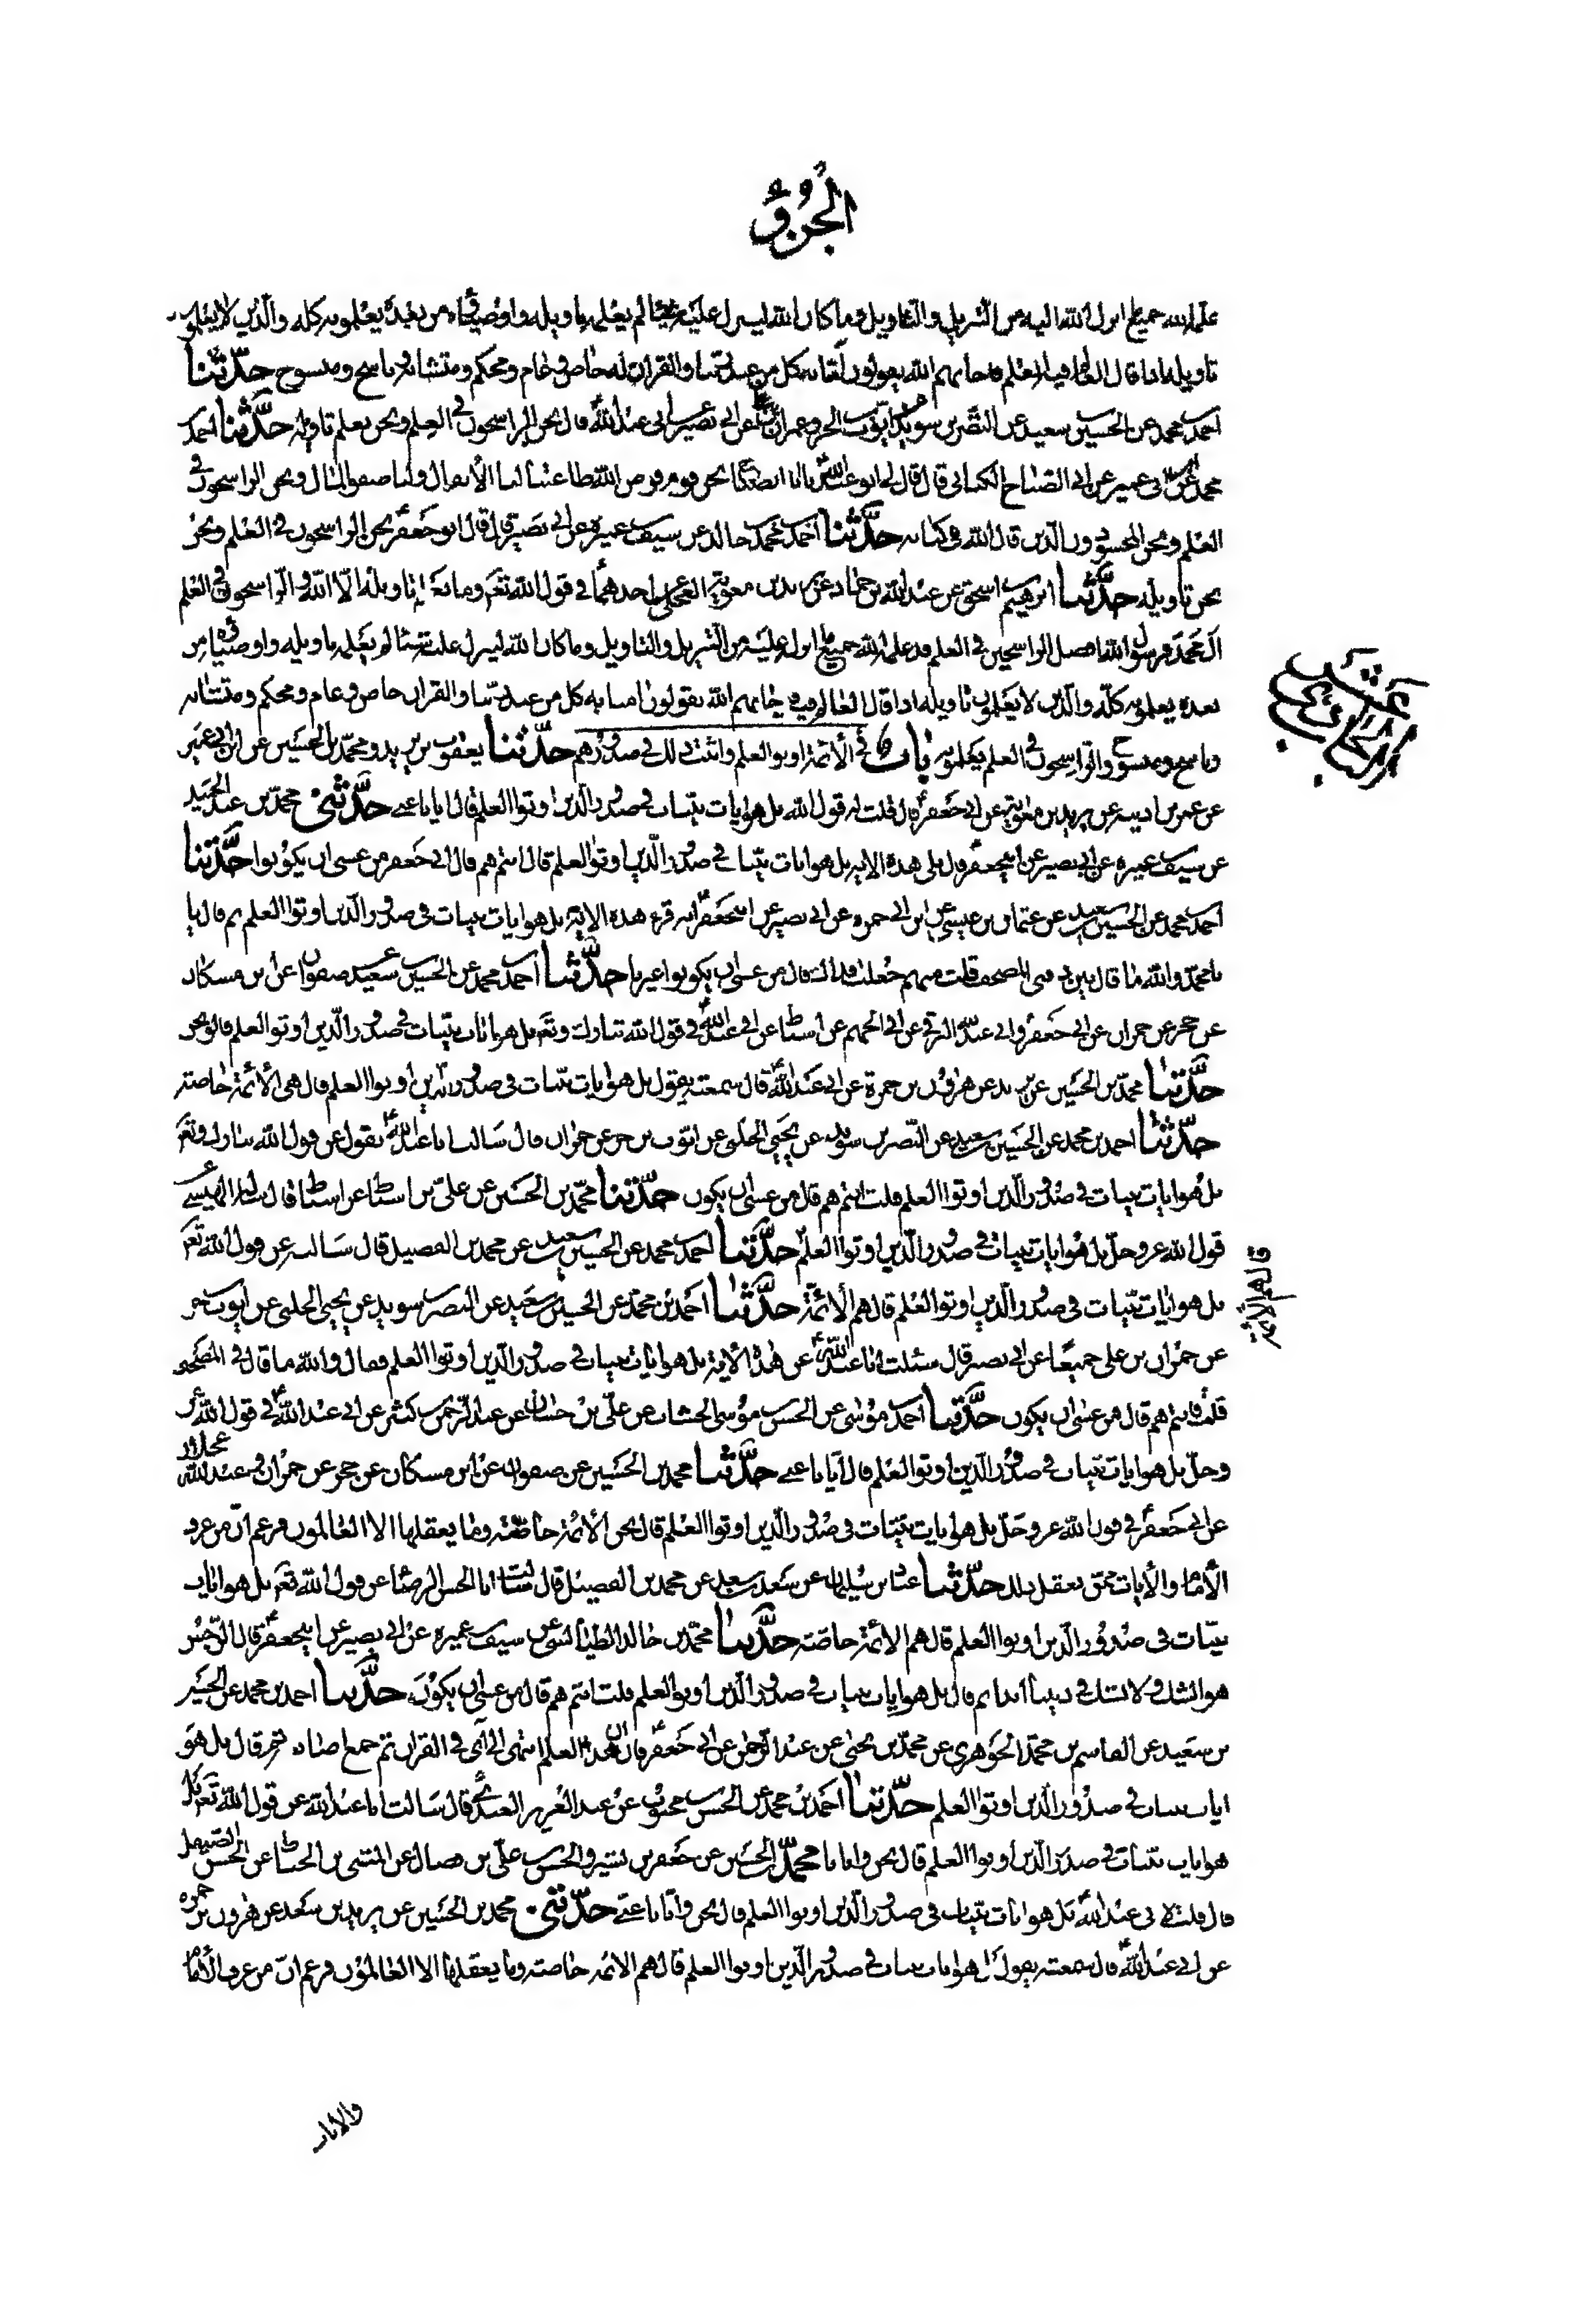 الجزؤ
علمه الله جميع ما انزل الله اليه من التنزيل والتاويل وما كان الله لينزل عليه شيئا لم يعلمه تاويله واوصياؤه من بعده يعلمونه كله والذين لا يعلمون
تاويله اذا قال العالم فيه العلم فاجابهم الله يقولون آمنا به كل من عند ربنا والقران له خاص وعام ومحكم ومتشابه وناسخ ومنسوخ حدثنا
احمد بن محمد عن الحسين بن سعيد عن النضر بن سويد عن ايوب بن الحر وعمران بن علي عن ابي بصير عن ابي عبد الله قال نحن الراسخون في العلم ونحن نعلم تاويله حدثنا احمد بن
محمد عن ابن ابي عمير عن ابي الصباح الكناني قال قال لي ابو عبد الله يا ابا الصباح نحن قوم فرض الله طاعتنا لنا الانفال ولنا صفو المال ونحن الراسخون في
العلم ونحن المحسودون الذين قال الله في كتابه حدثنا احمد بن محمد بن خالد عن سيف بن عميرة عن ابي بصير قال قال ابو جعفر نحن الراسخون في العلم ونحن
نحن تاويله حدثنا ابرهيم بن اسحق عن عبد الله بن حماد عن بريد بن معوية العجلي عن احدهما في قول الله تعم وما يعلم تاويله الا الله والراسخون في العلم
آل محمد فرسول الله افضل الراسخين في العلم قد علمه الله جميع ما انزل عليه من التنزيل والتاويل وما كان الله لينزل عليه شيئا لم يعلمه تاويله واوصياؤه من
بعده يعلمونه كله والذين لا يعلمون تاويله اذا قال العالم فيه فاجابهم الله يقولون امنا به كل من عند ربنا والقران خاص وعام ومحكم ومتشابه
وناسخ ومنسوخ والراسخون في العلم يعلمونه باب في الائمة اوتوا العلم واثبت ذلك في صدورهم حدثنا يعقوب بن يزيد ومحمد بن الحسين عن ابن ابي عمير
عن عمر بن اذينه عن بريد بن معوية عن ابي جعفر قال قلت له قول الله بل هو ايات بينات في صدور الذين اوتوا العلم قال ايانا عنى حدثني محمد بن عبد الحميد
عن سيف بن عميره عن ابي بصير عن ابيجعفر قال تلى هذه الايه بل هو ايات بينات في صدور الذين اوتوا العلم قال انتم هم قال ابي جعفر من عسى ان يكونوا حدثنا
احمد بن محمد عن الحسين بن سعيد عن عثمان بن عيسى عن ابن ابي حمزه عن ابي بصير عن ابيجعفر انه قرء هذه الاية بل هو ايات بينات في صدور الذين اوتوا العلم ثم قال يا
يا محمد والله ما قال بين دفتي المصحف قلت منهم جعلت فداك قال من عسى ان يكونوا غيرنا حدثنا احمد بن محمد عن الحسين بن سعيد عن صفوان عن ابن مسكان
عن حجر عن حمران عن ابي جعفر وابي عبد الله البرقي عن ابي الجهم عن اسباط عن ابي عبد الله في قول الله تبارك وتعم بل هو ايات بينات في صدور الذين اوتوا العلم قال نحن
حدثنا محمد بن الحسين عن يزيد عن هرون بن حمزة عن ابي عبد الله قال سمعته يقول بل هو ايات بينات في صدور الذين اوتوا العلم قال هي الائمة خاصته
حدثنا احمد بن محمد عن الحسين بن سعيد عن النضر بن سويد عن يحيى الحلبي عن ايوب بن حر عن حمران قال سالت ابا عبد الله يقول عن قول الله تبارك وتعم
بل هو ايات بينات في صدور الذين اوتوا العلم قلت انتم هم قال من عسى ان يكون حدثنا محمد بن الحسين عن علي بن اسباط عن اسباط قال سئله الهيتي
قول الله عز وجل بل هو ايات بينات في صدور الذين اوتوا العلم حدثنا احمد بن محمد عن الحسين بن سعيد عن محمد بن الفضيل قال سالته عن قول الله تعم
بل هو ايات بينات في صدور الذين اوتوا العلم قال هم الائمة حدثنا احمد بن محمد عن الحسين بن سعيد عن النضر بن سويد عن يحيى الحلبي عن ايوب بن حر
عن حمران بن علي جميعا عن ابي بصير قال سئلت ابا عبد الله عن هذه الاية بل هو ايات بينات في صدور الذين اوتوا العلم فقال والله ما قال في المصحف
قلت فانتم هم قال من عسى ان يكون حدثنا احمد بن موسى عن الحسن بن موسى الخشاب عن علي بن حسان عن عبد الرحمن بن كثير عن ابي عبد الله في قول الله عز
وجل بل هو ايات بينات في صدور الذين اوتوا العلم قال ايانا عنى حدثنا محمد بن الحسين عن صفوان عن ابن مسكان عن حجر عن حمران وعبد الله بن عجلان
عن ابي جعفر في قول الله عز وجل بل هو ايات بينات في صدور الذين اوتوا العلم قال نحن الائمة خاصته وما يعقلها الا العالمون فزعم ان من عرف
الامام والايات ممن يعقل ذلك حدثنا عباد بن سليمان عن سعد بن سعد عن محمد بن الفضيل قال سالت ابا الحسن الرضا عن قول الله تعم بل هو ايات
بينات في صدور الذين اوتوا العلم قال هم الائمة خاصته حدثنا محمد بن خالد الطيالسي عن سيف بن عميره عن ابي بصير عن ابيجعفر قال الرجس
هو الشك ولا نشك في ديننا ابدا ثم قال بل هو ايات بينات في صدور الذين اوتوا العلم قلت انتم هم قال من عسى ان يكون حدثنا احمد بن محمد عن الحسين
بن سعيد عن القاسم بن محمد الجوهري عن محمد بن يحيى عن عبد الرحمن عن ابي جعفر قال ان هذا العلم انتهى الى آي في القران ثم جمع اصابعه ثم قال بل هو
ايات بينات في صدور الذين اوتوا العلم حدثنا احمد بن محمد عن الحسن بن محبوب عن عبد العزيز العبدي قال سالت ابا عبد الله عن قول الله تعم بل
هو ايات بينات في صدور الذين اوتوا العلم قال نحن وايانا محمد بن الحسين عن جعفر بن بشير والحسن بن علي بن فضال عن المثنى بن الحناط عن الحسن الصيقل
قال قلت لابي عبد الله بل هو ايات بينات في صدور الذين اوتوا العلم قال نحن وايانا عنى حدثني محمد بن الحسين عن يزيد بن سعد عن هرون بن حمزه
عن ابي عبد الله قال سمعته يقول بل هو ايات بينات في صدور الذين اوتوا العلم قال هم الائمه خاصته وما يعقلها الا العالمون فزعم ان من عرف الامام
والايات